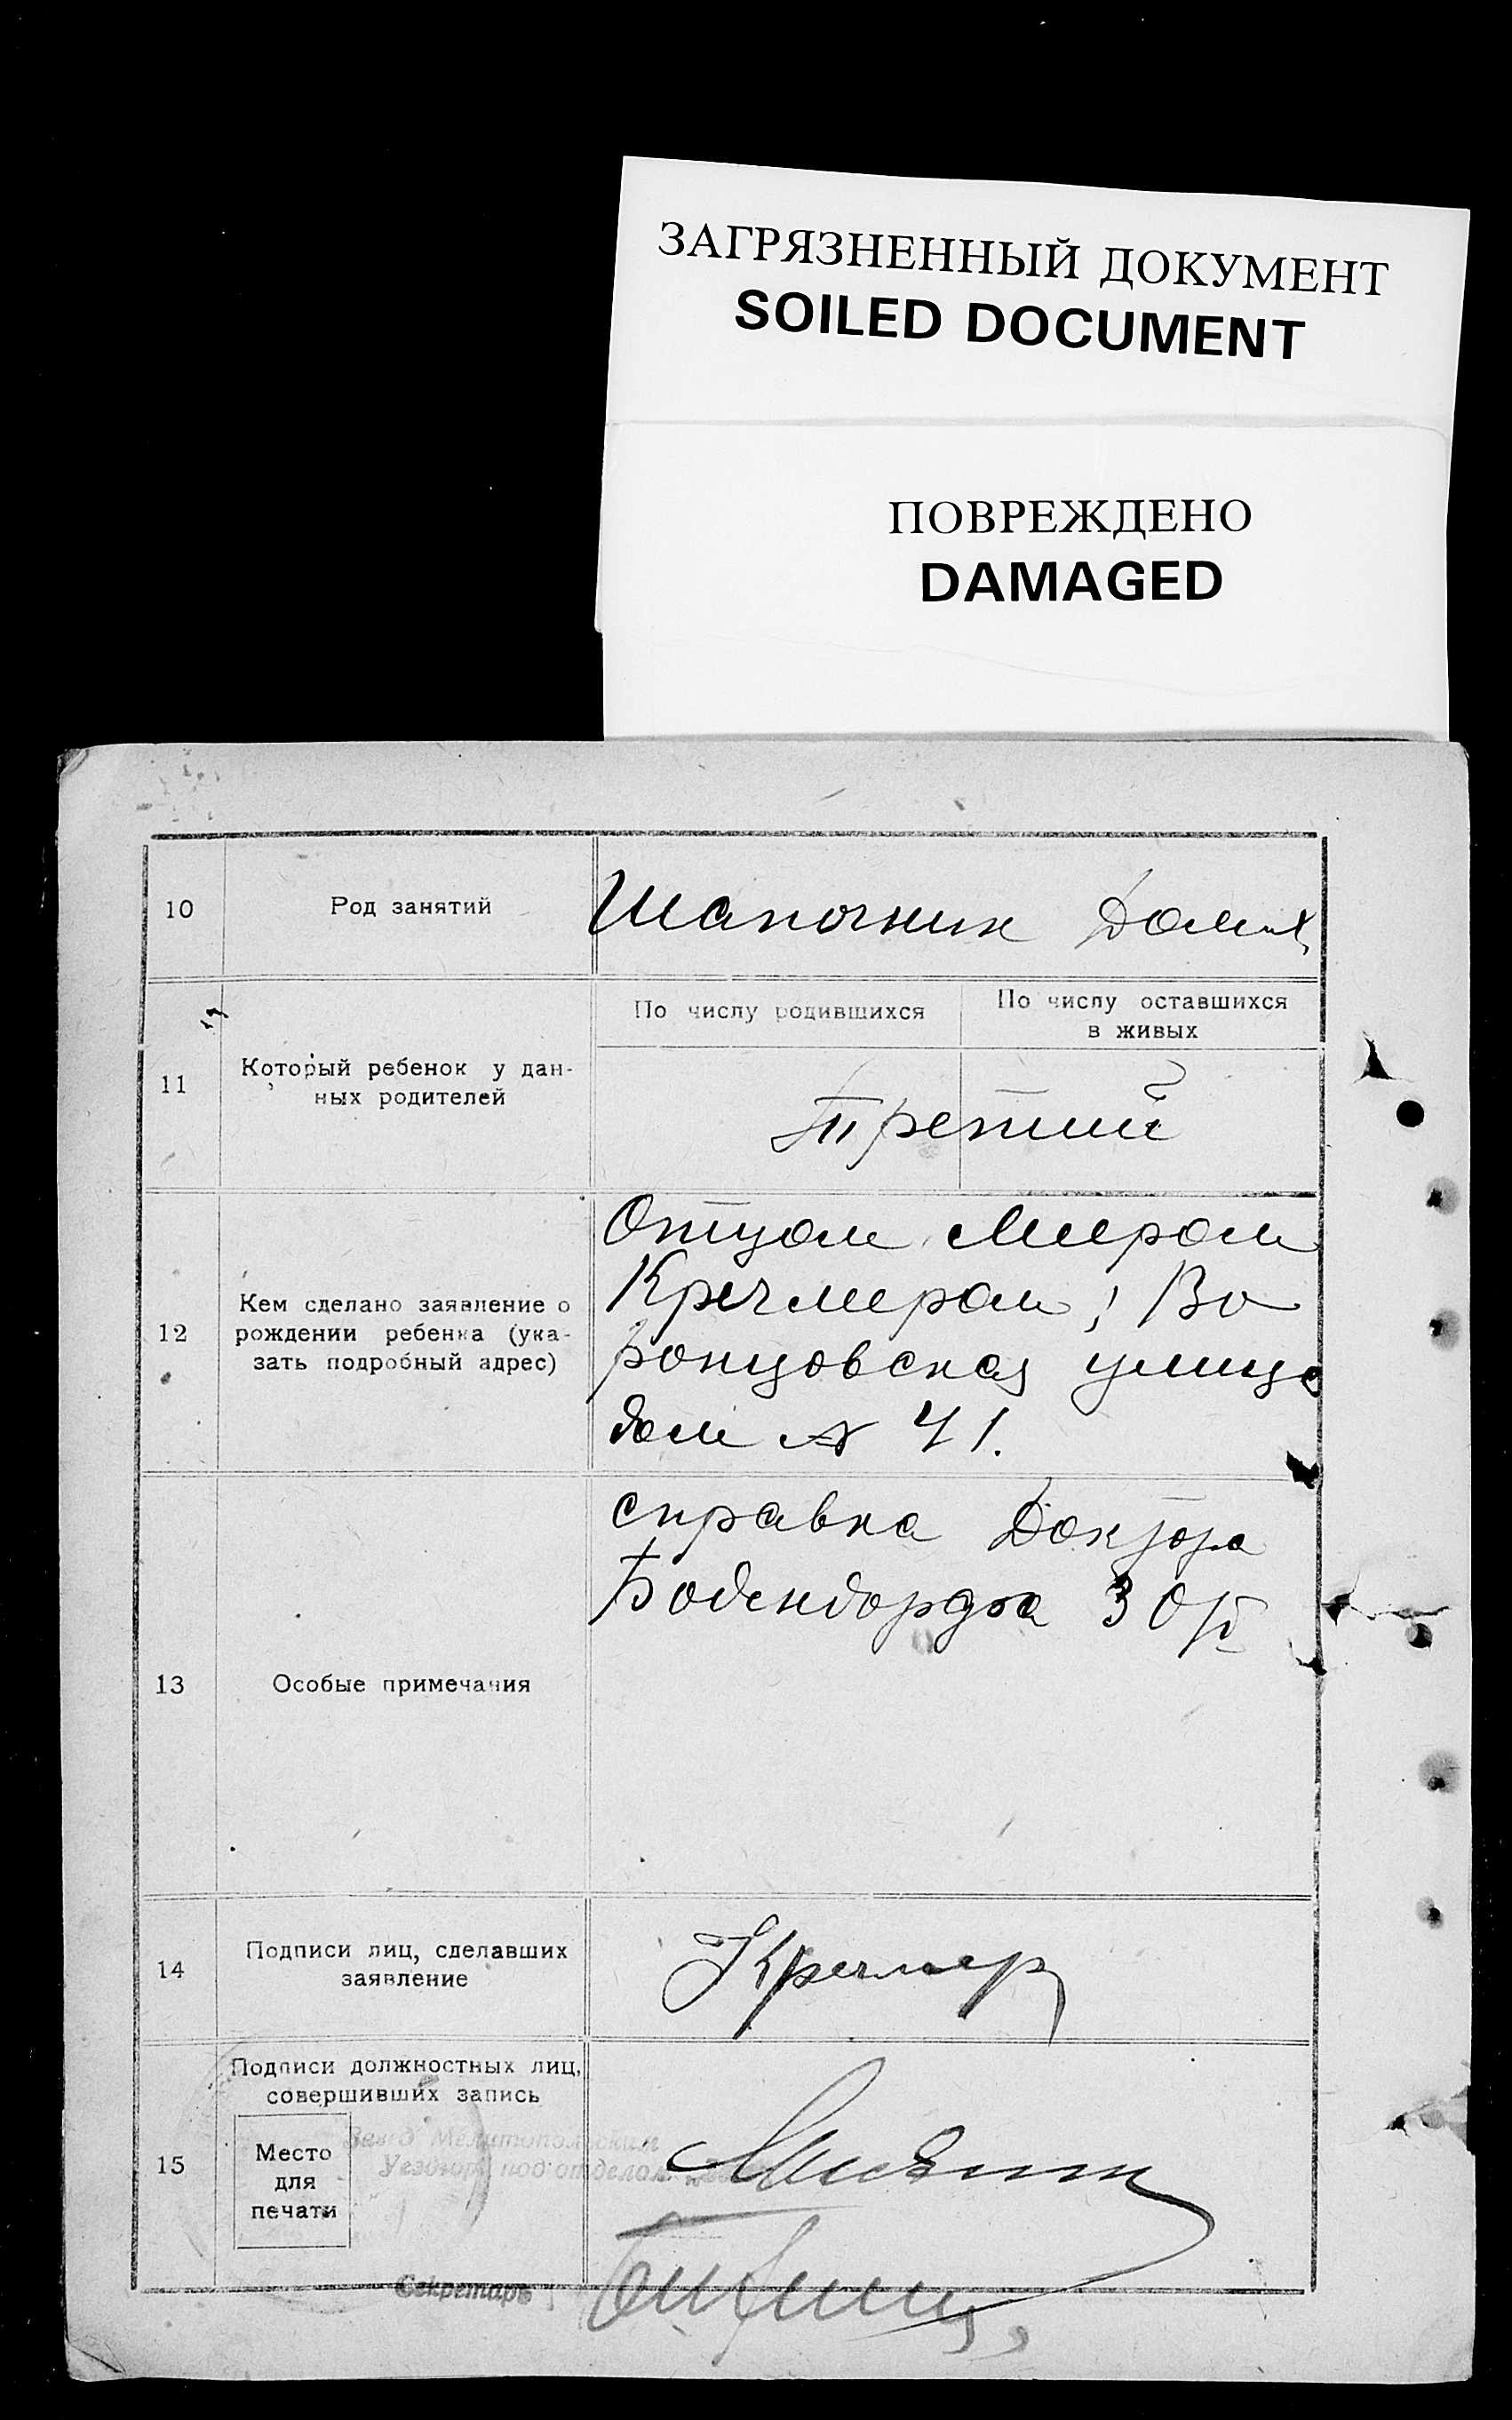 ЗАГРЯЗНЕННЫЙ ДОКУМЕНТ
SOILED DOCUMENT
ПОВРЕЖДЕНО
DAMAGED
10
Род занятий
Шапочник Домих
По числу родившихся
По числу оставшихся
в живых
11
Который ребенок у дан-
ных родителей
Третий
12
Кем сделано заявление о
рождении ребенка (ука-
зать подробный адрес)
Отцом Меером
Кречмером; Во
ронцовская улица
дом № 41.
13
Особые примечания
справка Доктора
Бодендорфа
14
Подписи лиц, сделавших
заявление
Кречмер
15
Подписи должностных лиц,
совершивших запись
Место
для
печати
Мелитопольским
Уездным подотделом
Секретарь